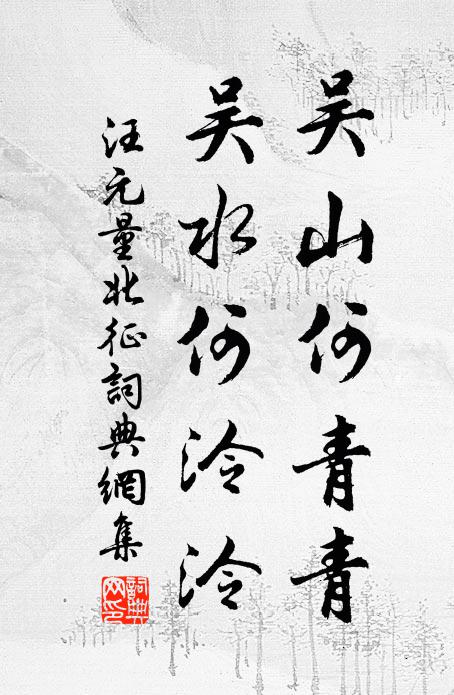 吴山何青青
吴水何泠泠
汪元量北征詞典網集
詞典网印